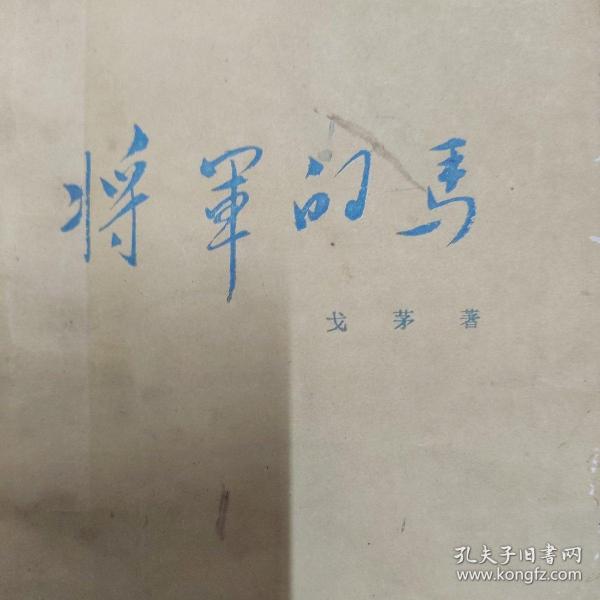 将軍的馬
戈茅著
孔夫子旧书网
www.kongfz.com